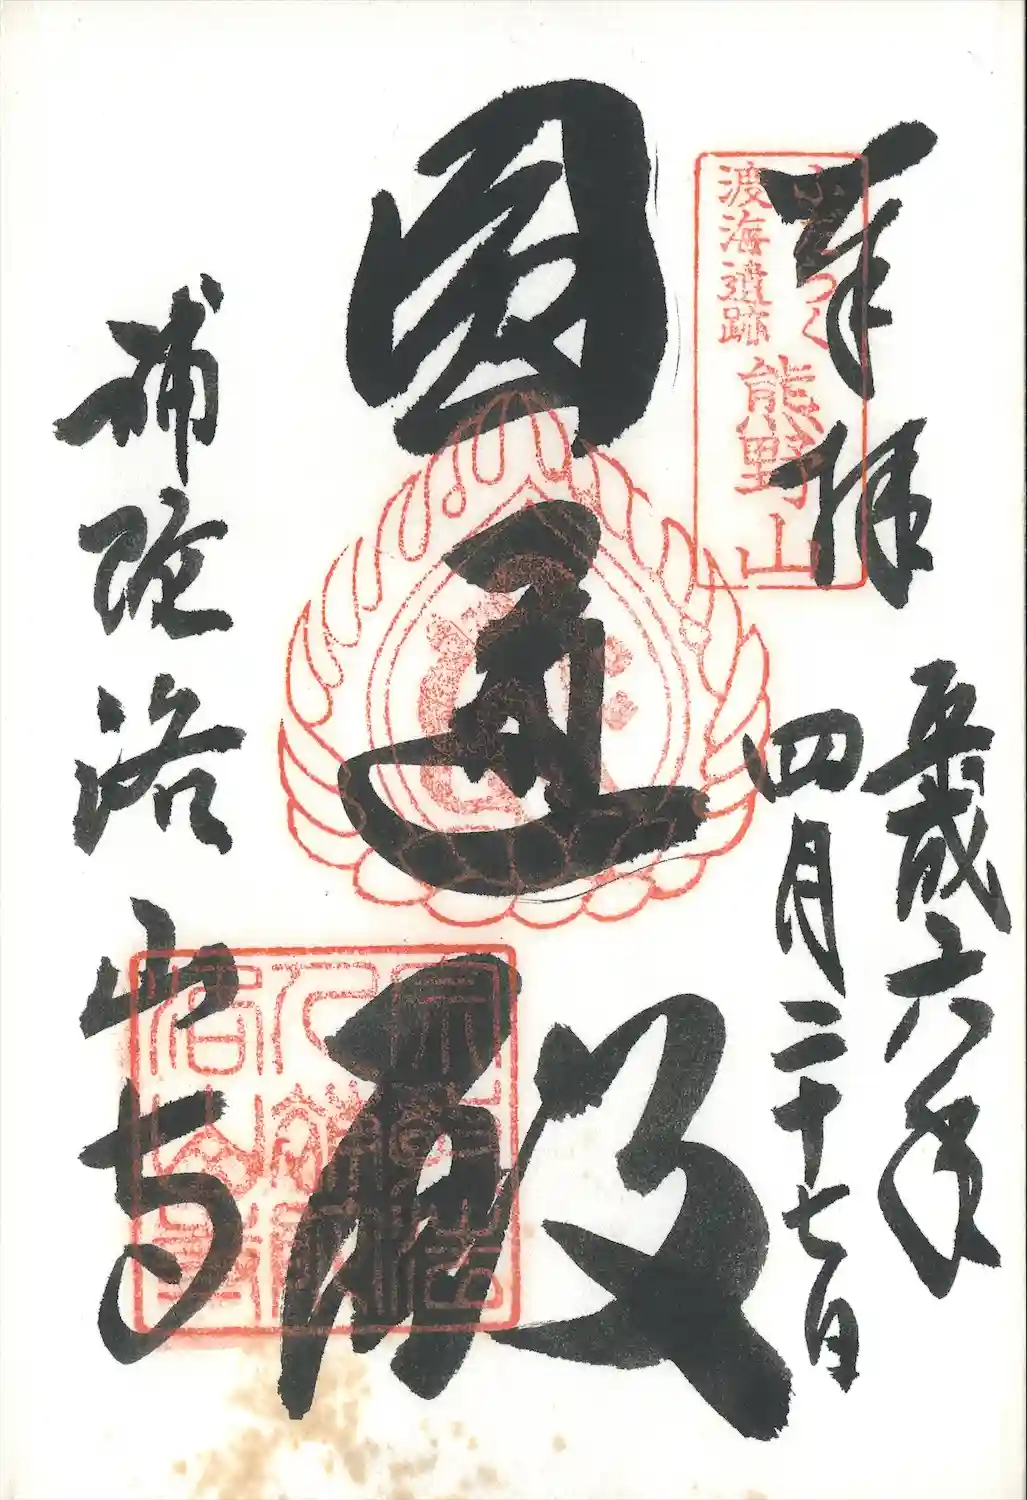 奉拝
平成六年
四月二十七日
ふだらく
渡海遺跡
熊野山
圓通殿
補陀洛山寺